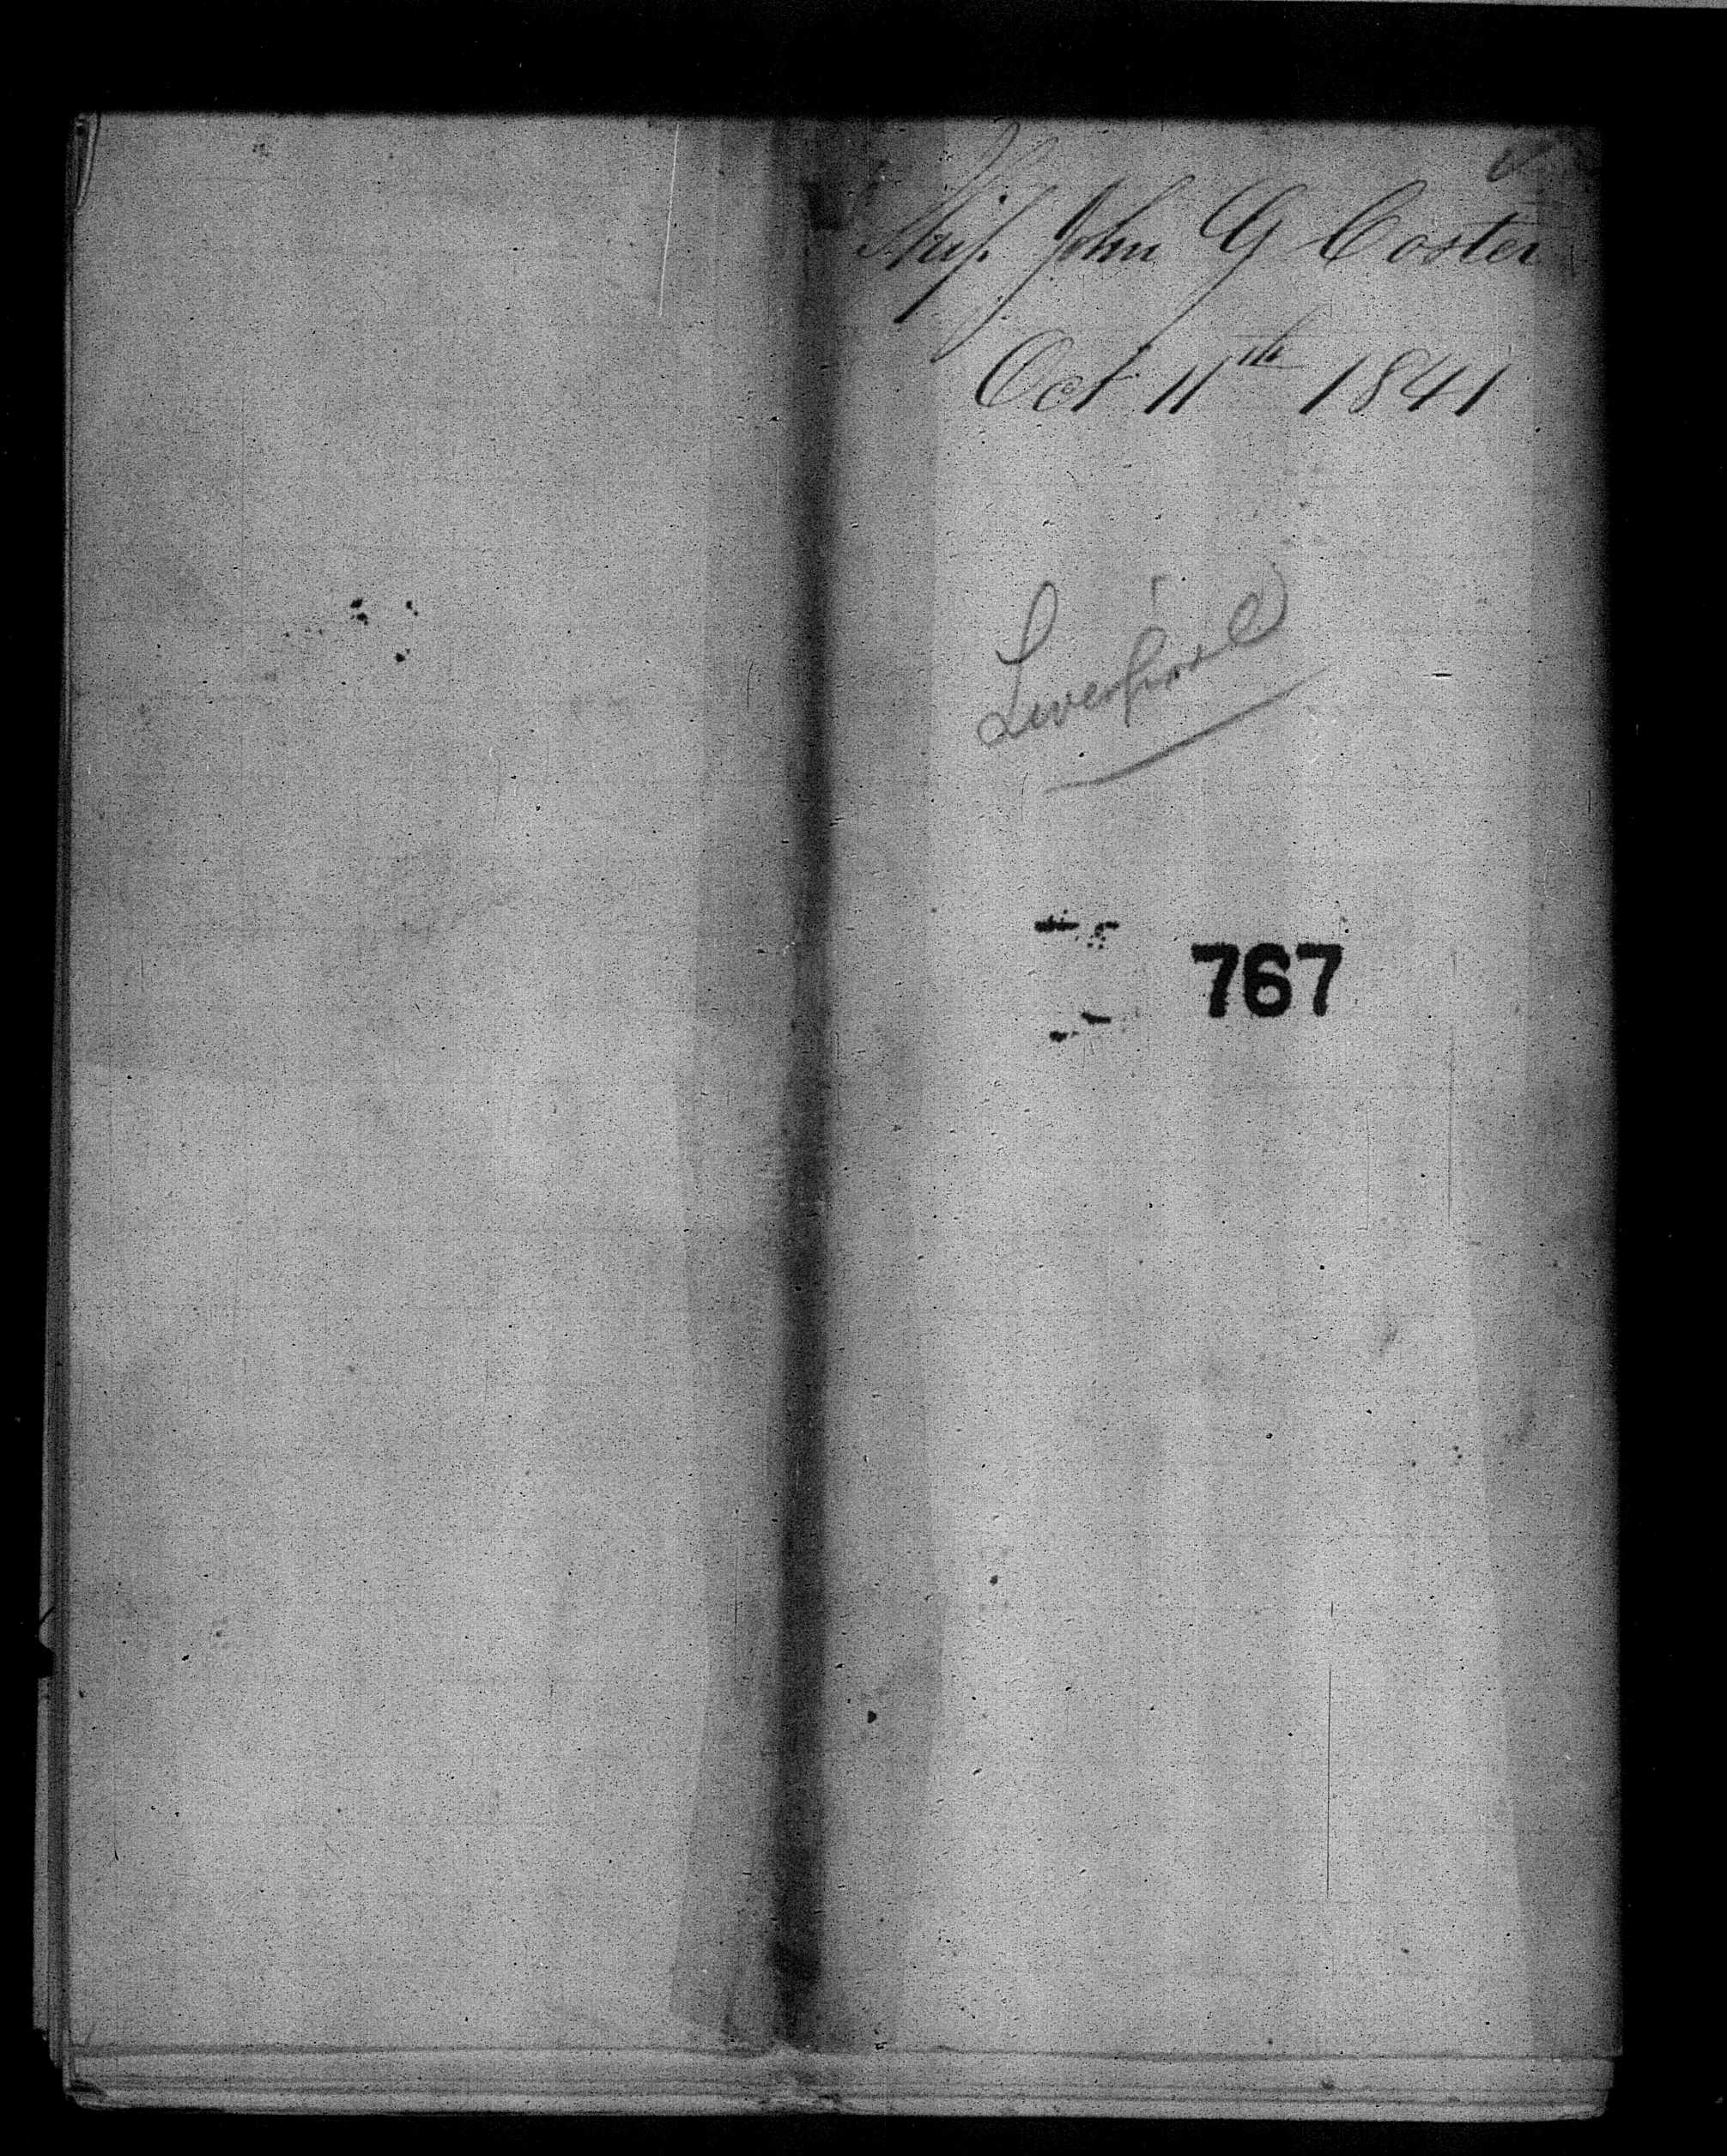 Ship John G Coster
Oct 11th 1841
Liverpool
767